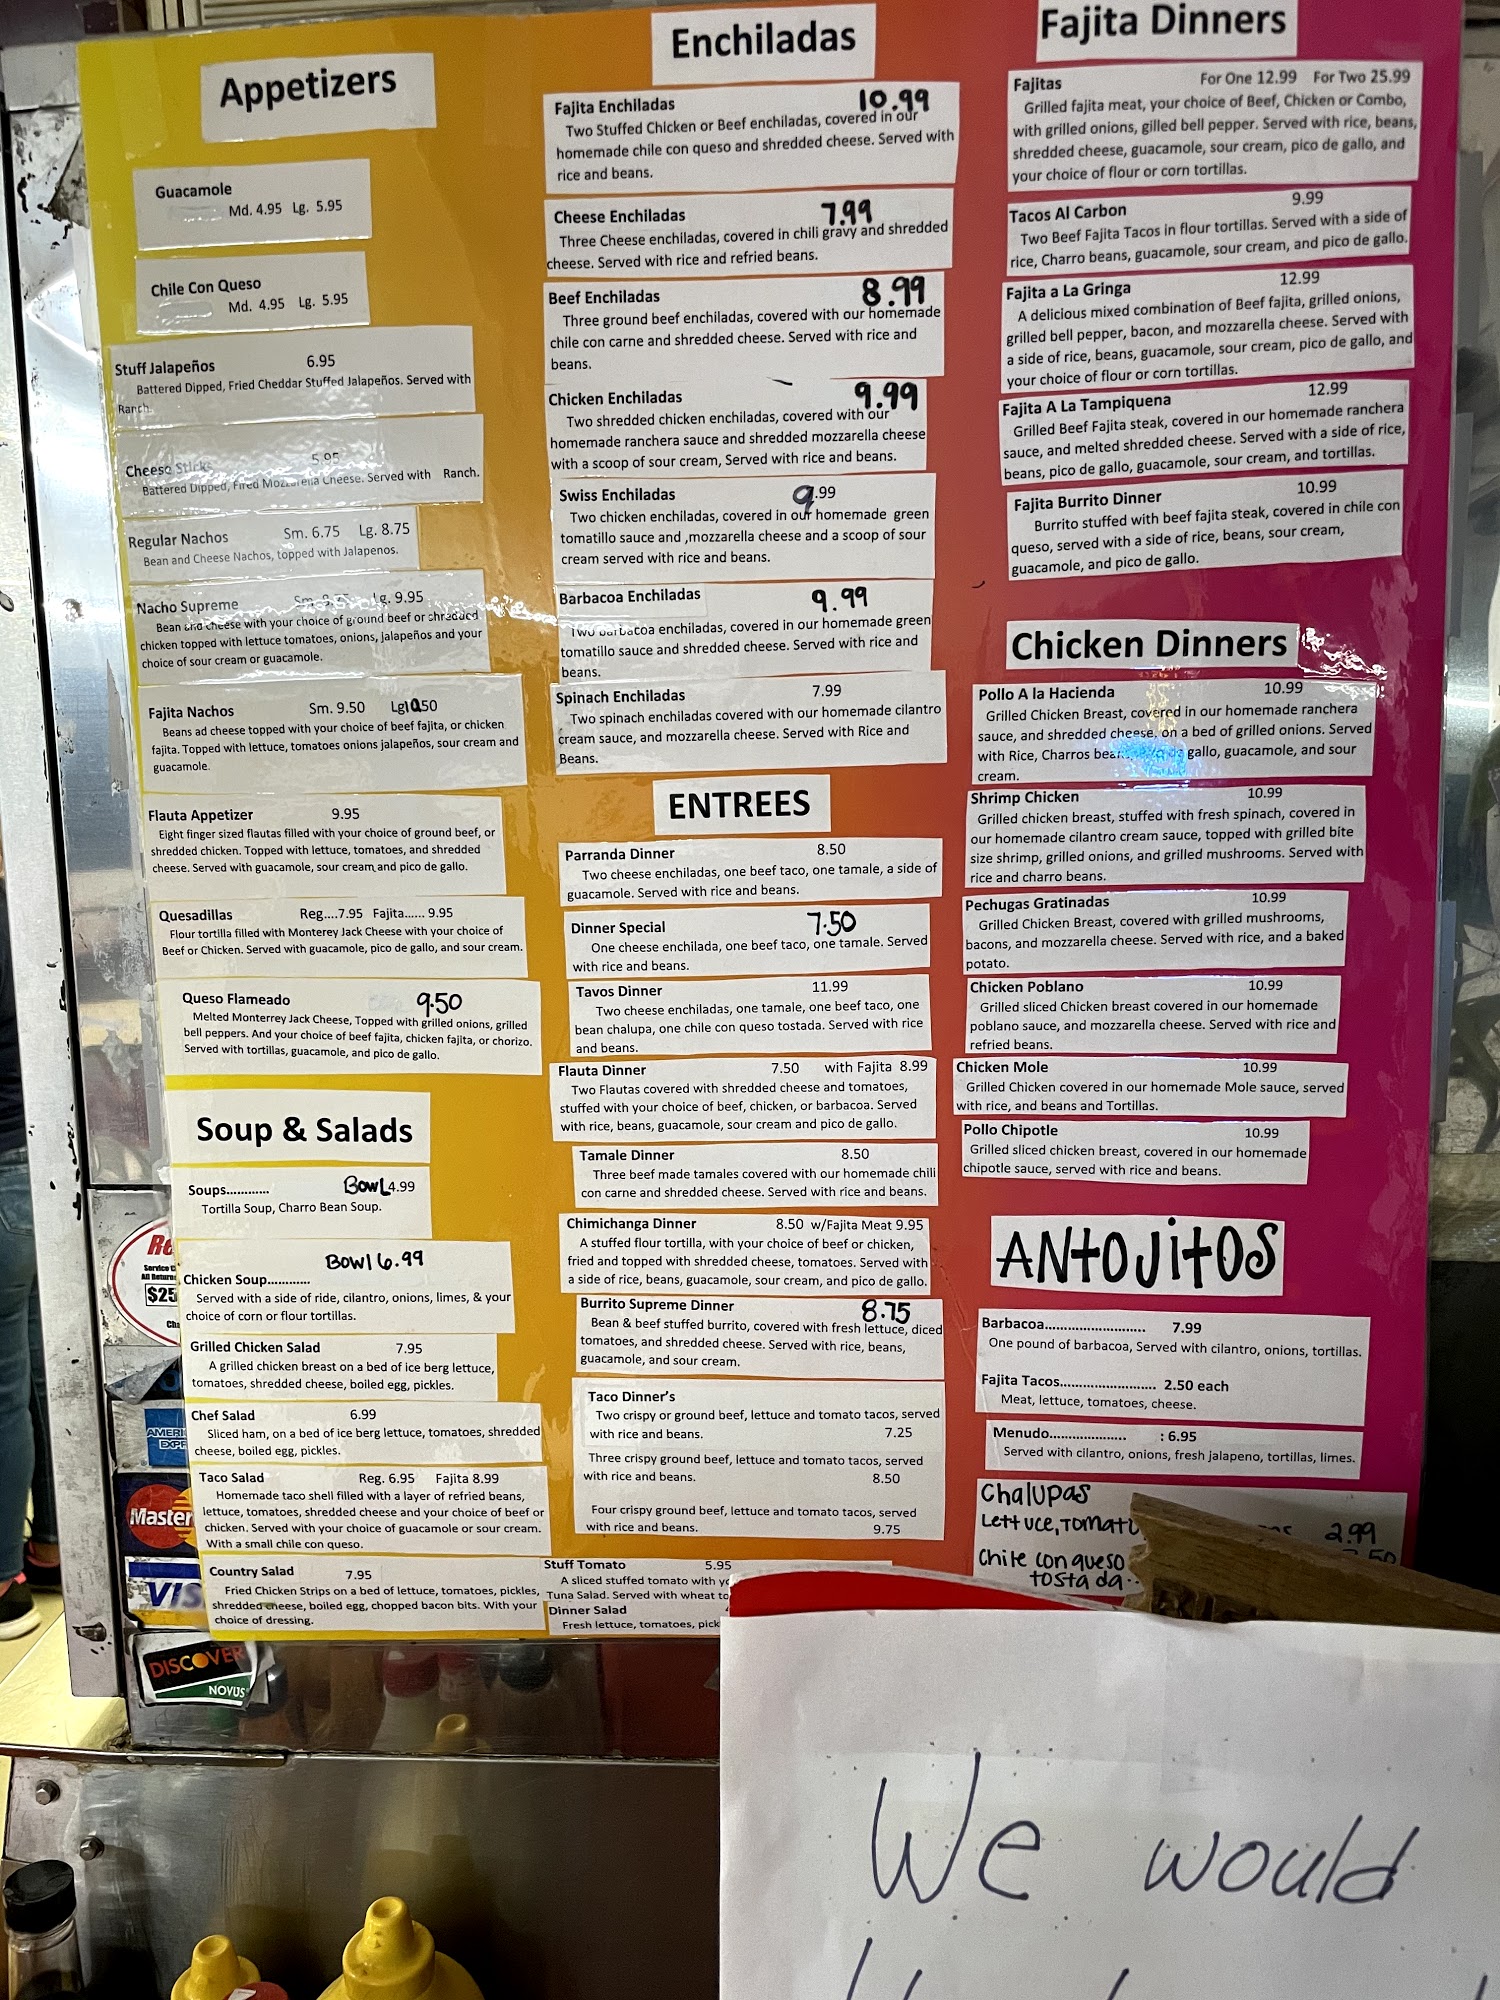 Appetizers
Guacamole
Md. 4.95 Lg. 5.95
Chile Con Queso
Md. 4.95 Lg. 5.95
Stuff Jalapeños 6.95
Battered Dipped, Fried Cheddar Stuffed Jalapeños. Served with
Ranch.
Cheese Sticks 5.95
Battered Dipped, Fired Mozzarella Cheese. Served with Ranch.
Regular Nachos Sm. 6.75 Lg. 8.75
Bean and Cheese Nachos, topped with Jalapenos.
Nacho Supreme Sm. Lg. 9.95
Bean and cheese with your choice of ground beef or shredded
chicken topped with lettuce tomatoes, onions, jalapeños and your
choice of sour cream or guacamole.
Fajita Nachos Sm. 9.50 Lg10.50
Beans ad cheese topped with your choice of beef fajita, or chicken
fajita. Topped with lettuce, tomatoes onions jalapeños, sour cream and
guacamole.
Flauta Appetizer 9.95
Eight finger sized flautas filled with your choice of ground beef, or
shredded chicken. Topped with lettuce, tomatoes, and shredded
cheese. Served with guacamole, sour cream and pico de gallo.
Quesadillas Reg....7.95 Fajita...... 9.95
Flour tortilla filled with Monterey Jack Cheese with your choice of
Beef or Chicken. Served with guacamole, pico de gallo, and sour cream.
Queso Flameado 9.50
Melted Monterrey Jack Cheese, Topped with grilled onions, grilled
bell peppers. And your choice of beef fajita, chicken fajita, or chorizo.
Served with tortillas, guacamole, and pico de gallo.
Soup & Salads
Soups............ Bowl 4.99
Tortilla Soup, Charro Bean Soup.
Bowl 6.99
Chicken Soup............
Served with a side of ride, cilantro, onions, limes, & your
choice of corn or flour tortillas.
Grilled Chicken Salad 7.95
A grilled chicken breast on a bed of ice berg lettuce,
tomatoes, shredded cheese, boiled egg, pickles.
Chef Salad 6.99
Sliced ham, on a bed of ice berg lettuce, tomatoes, shredded
cheese, boiled egg, pickles.
Taco Salad Reg. 6.95 Fajita 8.99
Homemade taco shell filled with a layer of refried beans,
lettuce, tomatoes, shredded cheese and your choice of beef or
chicken. Served with your choice of guacamole or sour cream.
With a small chile con queso.
Country Salad 7.95
Fried Chicken Strips on a bed of lettuce, tomatoes, pickles,
shredded cheese, boiled egg, chopped bacon bits. With your
choice of dressing.
Enchiladas
Fajita Enchiladas 10.99
Two Stuffed Chicken or Beef enchiladas, covered in our
homemade chile con queso and shredded cheese. Served with
rice and beans.
Cheese Enchiladas 7.99
Three Cheese enchiladas, covered in chili gravy and shredded
cheese. Served with rice and refried beans.
Beef Enchiladas 8.99
Three ground beef enchiladas, covered with our homemade
chile con carne and shredded cheese. Served with rice and
beans.
Chicken Enchiladas 9.99
Two shredded chicken enchiladas, covered with our
homemade ranchera sauce and shredded mozzarella cheese
with a scoop of sour cream, Served with rice and beans.
Swiss Enchiladas 9.99
Two chicken enchiladas, covered in our homemade green
tomatillo sauce and ,mozzarella cheese and a scoop of sour
cream served with rice and beans.
Barbacoa Enchiladas 9.99
Two barbacoa enchiladas, covered in our homemade green
tomatillo sauce and shredded cheese. Served with rice and
beans.
Spinach Enchiladas 7.99
Two spinach enchiladas covered with our homemade cilantro
cream sauce, and mozzarella cheese. Served with Rice and
Beans.
ENTREES
Parranda Dinner 8.50
Two cheese enchiladas, one beef taco, one tamale, a side of
guacamole. Served with rice and beans.
Dinner Special 7.50
One cheese enchilada, one beef taco, one tamale. Served
with rice and beans.
Tavos Dinner 11.99
Two cheese enchiladas, one tamale, one beef taco, one
bean chalupa, one chile con queso tostada. Served with rice
and beans.
Flauta Dinner 7.50 with Fajita 8.99
Two Flautas covered with shredded cheese and tomatoes,
stuffed with your choice of beef, chicken, or barbacoa. Served
with rice, beans, guacamole, sour cream and pico de gallo.
Tamale Dinner 8.50
Three beef made tamales covered with our homemade chili
con carne and shredded cheese. Served with rice and beans.
Chimichanga Dinner 8.50 w/Fajita Meat 9.95
A stuffed flour tortilla, with your choice of beef or chicken,
fried and topped with shredded cheese, tomatoes. Served with
a side of rice, beans, guacamole, sour cream, and pico de gallo.
Burrito Supreme Dinner 8.75
Bean & beef stuffed burrito, covered with fresh lettuce, diced
tomatoes, and shredded cheese. Served with rice, beans,
guacamole, and sour cream.
Taco Dinner's
Two crispy or ground beef, lettuce and tomato tacos, served
with rice and beans. 7.25
Three crispy ground beef, lettuce and tomato tacos, served
with rice and beans. 8.50
Four crispy ground beef, lettuce and tomato tacos, served
with rice and beans. 9.75
Stuff Tomato 5.95
A sliced stuffed tomato with
Tuna Salad. Served with wheat
Dinner Salad
Fresh lettuce, tomatoes,
Fajita Dinners
Fajitas For One 12.99 For Two 25.99
Grilled fajita meat, your choice of Beef, Chicken or Combo,
with grilled onions, gilled bell pepper. Served with rice, beans,
shredded cheese, guacamole, sour cream, pico de gallo, and
your choice of flour or corn tortillas.
Tacos Al Carbon 9.99
Two Beef Fajita Tacos in flour tortillas. Served with a side of
rice, Charro beans, guacamole, sour cream, and pico de gallo.
Fajita a La Gringa 12.99
A delicious mixed combination of Beef fajita, grilled onions,
grilled bell pepper, bacon, and mozzarella cheese. Served with
a side of rice, beans, guacamole, sour cream, pico de gallo, and
your choice of flour or corn tortillas.
Fajita A La Tampiquena 12.99
Grilled Beef Fajita steak, covered in our homemade ranchera
sauce, and melted shredded cheese. Served with a side of rice,
beans, pico de gallo, guacamole, sour cream, and tortillas.
Fajita Burrito Dinner 10.99
Burrito stuffed with beef fajita steak, covered in chile con
queso, served with a side of rice, beans, sour cream,
guacamole, and pico de gallo.
Chicken Dinners
Pollo A la Hacienda 10.99
Grilled Chicken Breast, covered in our homemade ranchera
sauce, and shredded cheese, on a bed of grilled onions. Served
with Rice, Charros gallo, guacamole, and sour
cream.
Shrimp Chicken 10.99
Grilled chicken breast, stuffed with fresh spinach, covered in
our homemade cilantro cream sauce, topped with grilled bite
size shrimp, grilled onions, and grilled mushrooms. Served with
rice and charro beans.
Pechugas Gratinadas 10.99
Grilled Chicken Breast, covered with grilled mushrooms,
bacons, and mozzarella cheese. Served with rice, and a baked
potato.
Chicken Poblano 10.99
Grilled sliced Chicken breast covered in our homemade
poblano sauce, and mozzarella cheese. Served with rice and
refried beans.
Chicken Mole 10.99
Grilled Chicken covered in our homemade Mole sauce, served
with rice, and beans and Tortillas.
Pollo Chipotle 10.99
Grilled sliced chicken breast, covered in our homemade
chipotle sauce, served with rice and beans.
ANtOJitOS
Barbacoa.......................... 7.99
One pound of barbacoa, Served with cilantro, onions, tortillas.
Fajita Tacos......................... 2.50 each
Meat, lettuce, tomatoes, cheese.
Menudo.................... : 6.95
Served with cilantro, onions, fresh jalapeno, tortillas, limes.
Chalupas
Lettuce, 2.99
Chile con queso
tostada..
Service
$25
AMERI
EXPR
Master
VISA
DISCOVER
NOVUS
We would